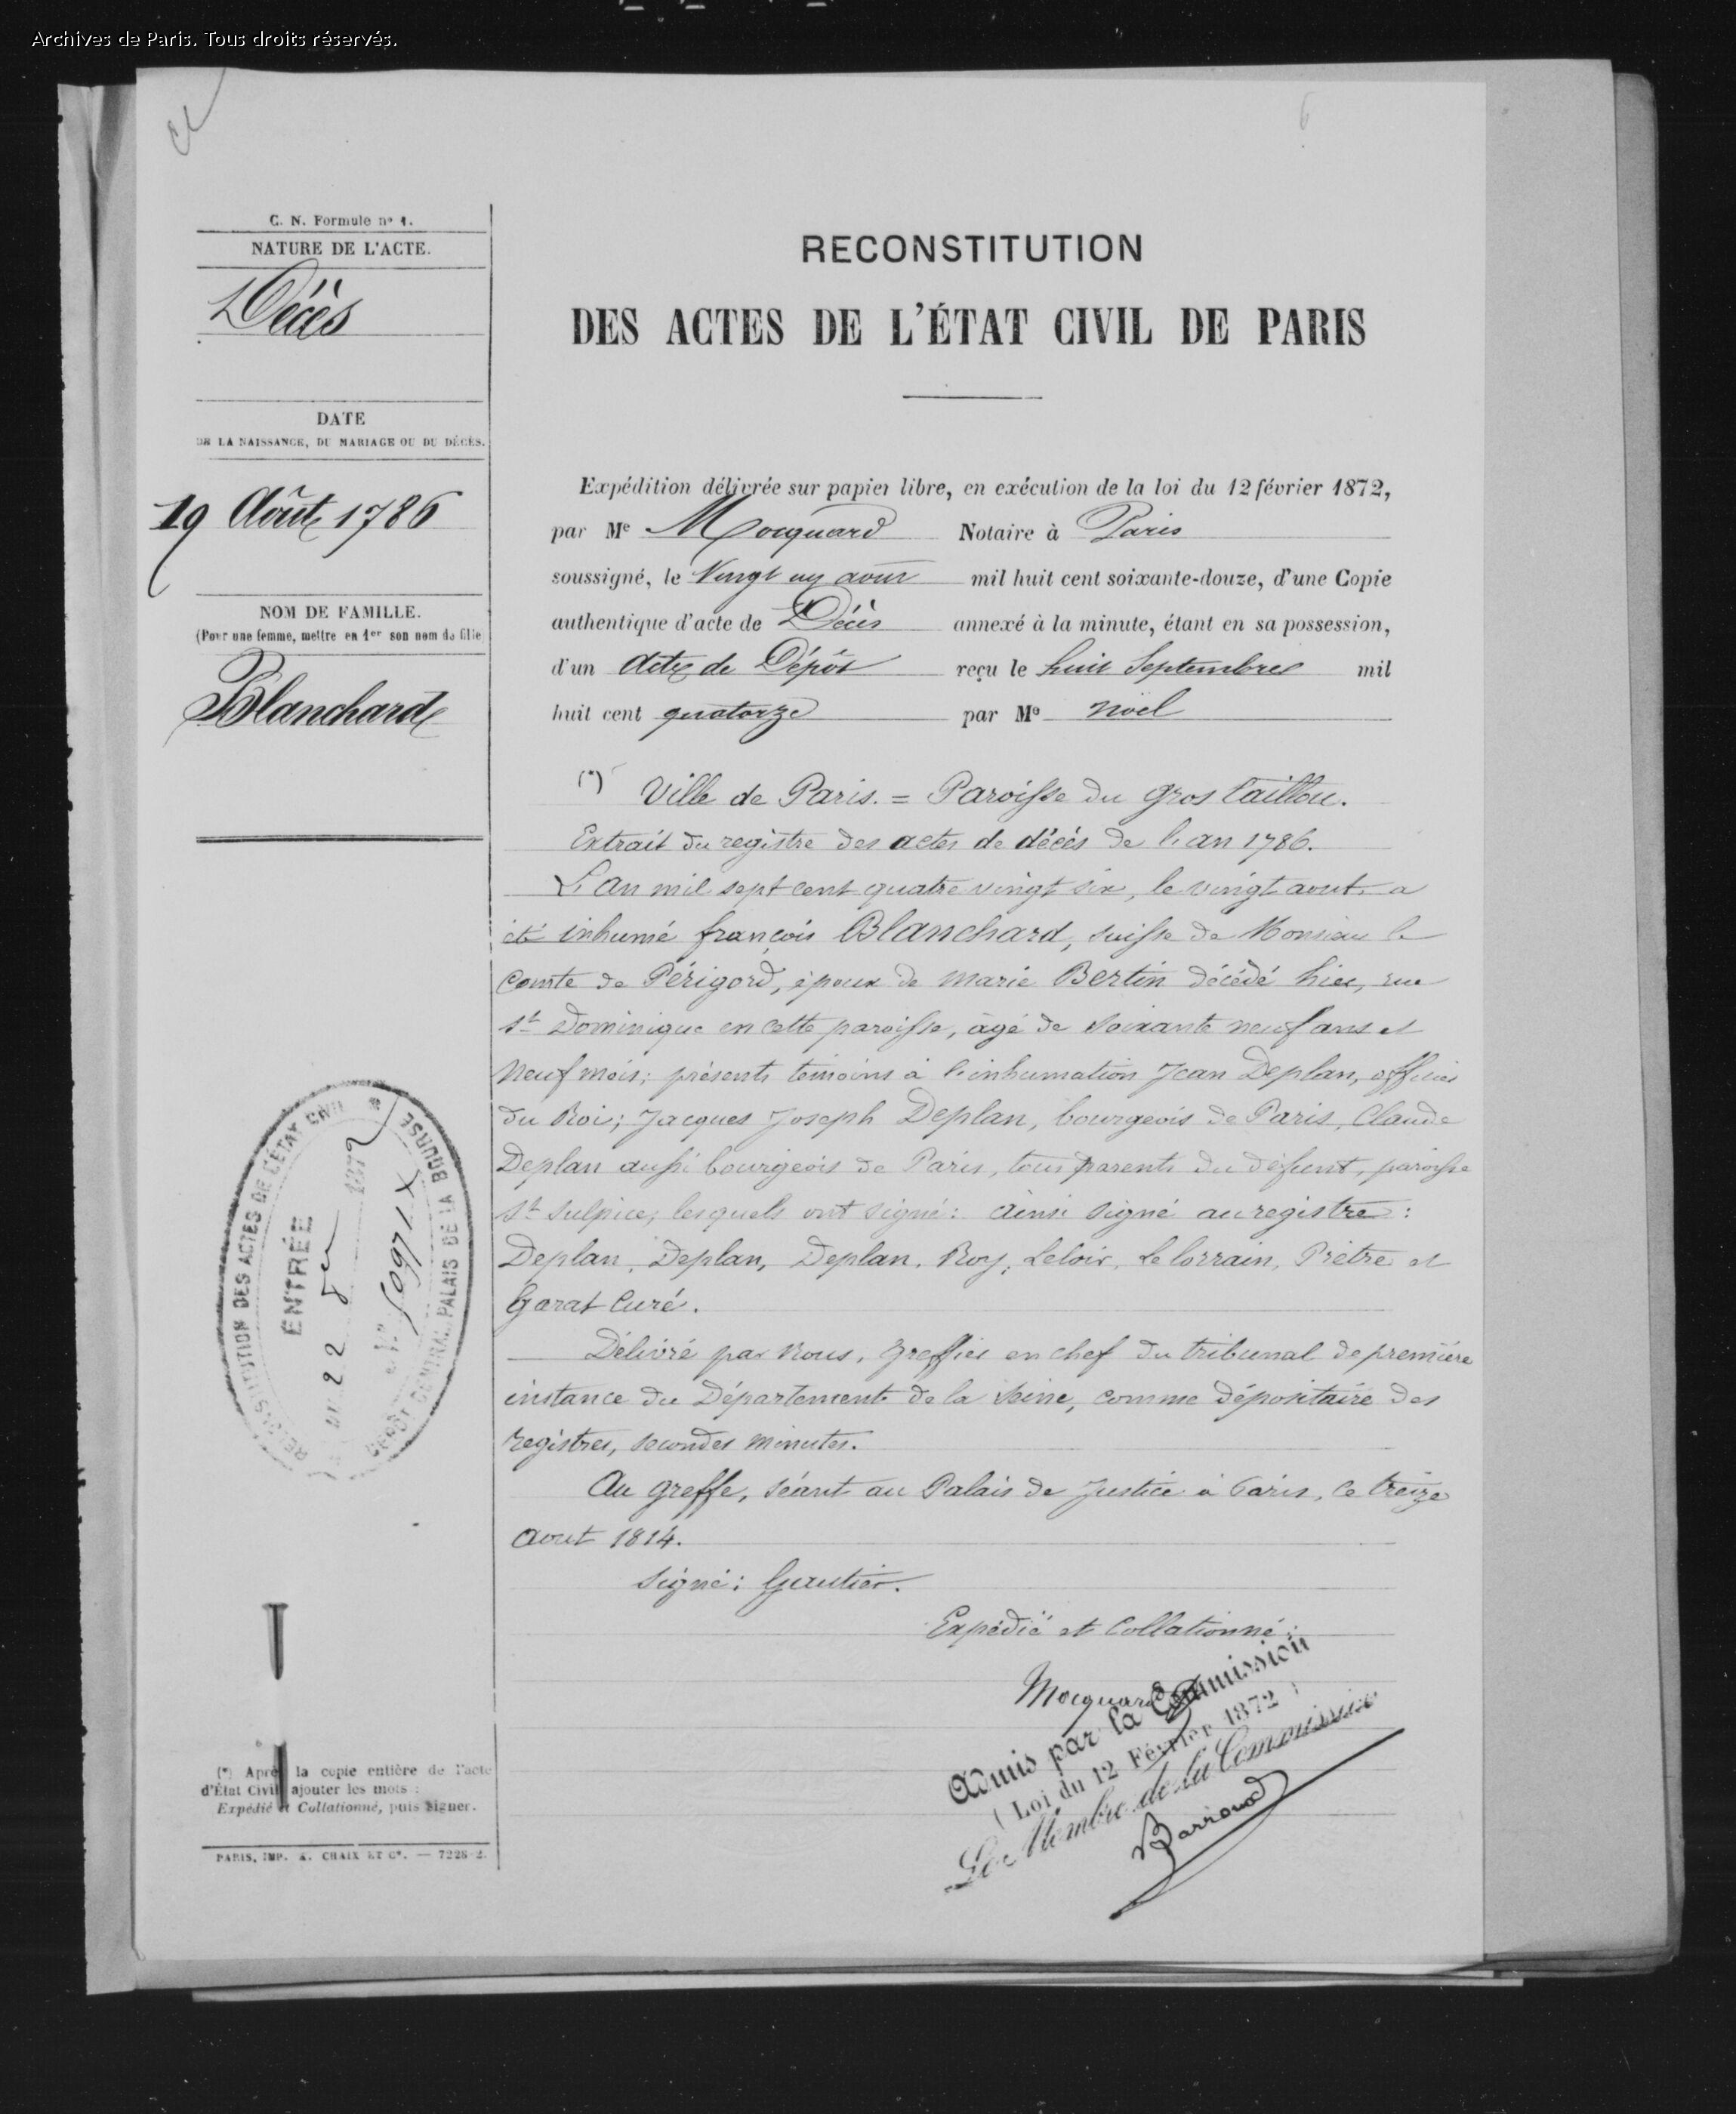 Archives de Paris. Tous droits réservés.
6
C. N. Formule nº 1.
NATURE DE L'ACTE.
Décès
DATE
DE LA NAISSANCE, DU MARIAGE OU DU DÉCÈS.
19 Août 1786
NOM DE FAMILLE.
(Pour une femme, mettre en 1er son nom de fille
Blanchard
RECONSTITUTION
DES ACTES DE L'ÉTAT CIVIL DE PARIS
Expédition délivrée sur papier libre, en exécution de la loi du 12 février 1872,
par Me Mocquard Notaire à Paris
soussigné, le Vingt un août mil huit cent soixante-douze, d'une Copie
authentique d'acte de Décès annexé à la minute, étant en sa possession,
d'un Acte de Dépôt reçu le huit Septembre mil
huit cent quatorze par Me Noël
(*) Ville de Paris. = Paroisse du gros Caillou.
Extrait du registre des actes de décès de l'an 1786.
L'an mil sept cent quatre vingt six, le vingt aout, a
été inhumé françois Blanchard, suisse de Monsieur le
Comte de Périgord, époux de Marie Bertin décédé hier, rue
St Dominique en cette paroisse, âgé de soixante neuf ans et
neuf mois; présents témoins à l'inhumation Jean Deplan, officier
du Roi; Jacques Joseph Deplan, bourgeois de Paris, Claude
Deplan aussi bourgeois de Paris, tous parents du défunt, paroisse
St Sulpice; lesquels ont signé: Ainsi signé au registre:
Deplan, Deplan, Deplan, Roy, Leloir, Le lorrain, Prêtre et
Garat Curé.
Délivré par nous, greffier en chef du tribunal de première
instance du Département de la Seine, comme dépositaire des
registres, secondes minutes.
Au greffe, séant au Palais de Justice à Paris, ce treize
Aout 1814.
Signé: Gautier.
Expédié et Collationné:
Mocquard
Admis par la Commission
(Loi du 12 Février 1872)
Le Membre de la Commission
Barroud
RECONSTITUTION DES ACTES DE L'ÉTAT CIVIL
ENTRÉE
22 1872
DÉPÔT CENTRAL PALAIS DE LA BOURSE
(*) Après la copie entière de l'acte
d'État Civil ajouter les mots :
Expédié et Collationné, puis signer.
PARIS, IMP. A. CHAIX ET Ce. — 7228-2.